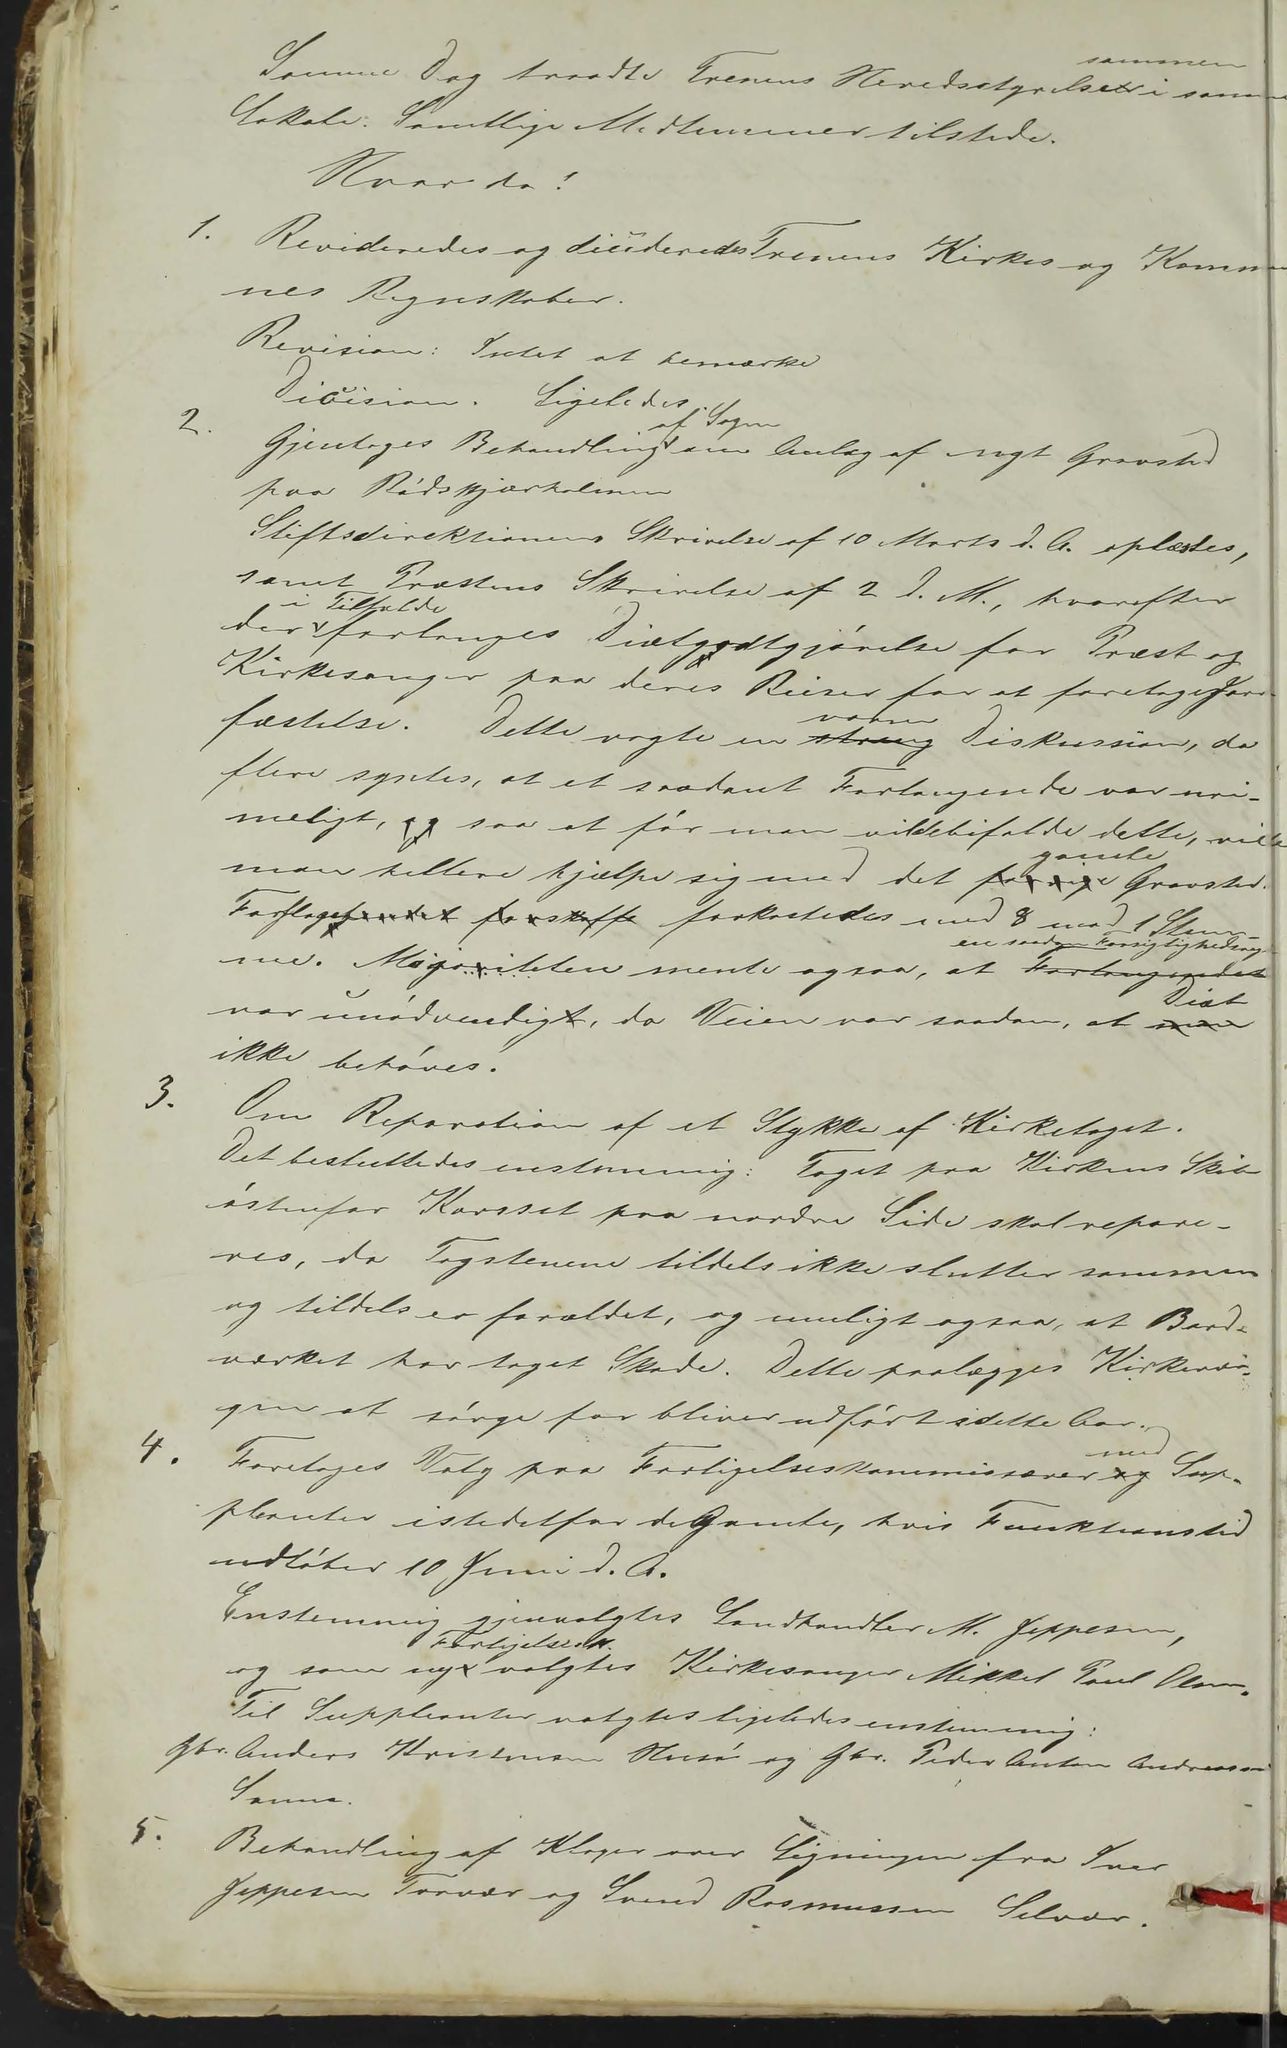 Samme Dag traadte Trænens Heredsstyrelse sammen i samme
Lokale. Samtlige Medlemmer tilstede.
Hvor da!
1. Revideredes og desideredes Trænens Kirkes og Kommu
nes Regnskaber.
Revision: Intet at bemærke
Dicision. Ligeledes.
2. Gjentages Behandling af Sagen om Anlæg af nyt Gravsted
paa Rödskjærholmen
Stiftsdirektionens Skrivelse af 10 Marts d. A. oplæstes,
samt Præstens Skrivelse af 2 d. M., hvorefter
der i Tilfælde forlanges Diætgodtgjörelse for Præst og
Kirkesanger paa deres Reiser for at foretage Jord-
fæstelse. Dette vagte en streng varm Diskussion, da
flere syntes, at et saadant Forlangende var uri-
meligt, og saa at för man vilde bifalde dette, vilde
man hellere hjælpe sig med det forrige gamle Gravsted.
Forslaget forkastedes med 8 mod 1 Stem-
me. Majoriteten mente ogsaa, at Forlangendet en saadan
var unödvendigt, da Veien var saadan, at man Diæt
ikke behöves.
3. Om Reparation af et Stykke af Kirketaget.
Det besluttedes enstemmig: Taget paa Kirkens Skib
östenfor Korsset paa nordre Side skal repare-
res, da Tagstenene tildels ikke slutter sammen
og tildels er forældet, og muligt ogsaa, at Bord-
værket har taget Skade. Dette paalægges Kirkevær-
gen at sörge for bliver udfört i dette Aar.
4. Foretages Valg paa Forligelseskommissærer og med Sup-
pleanter istedetfor de Gamle, hvis Funktionstid
udlöber 10 Juni d. A.
Enstemmig gjenvalgtes Landhandler M. Jeppesen,
og som ny Forligelsesk. valgtes Kirkesanger Mikkel Paul Olsen.
Til Suppleanter valgtes ligeledes enstemmig:
Gbr. Anders Kristensen Husö og Gbr. Peder Anton Andreassen
Sanna.
5. Behandling af Klager over Ligningen fra Iver
Jeppesen Torvær og Svend Rasmussen Selvær.